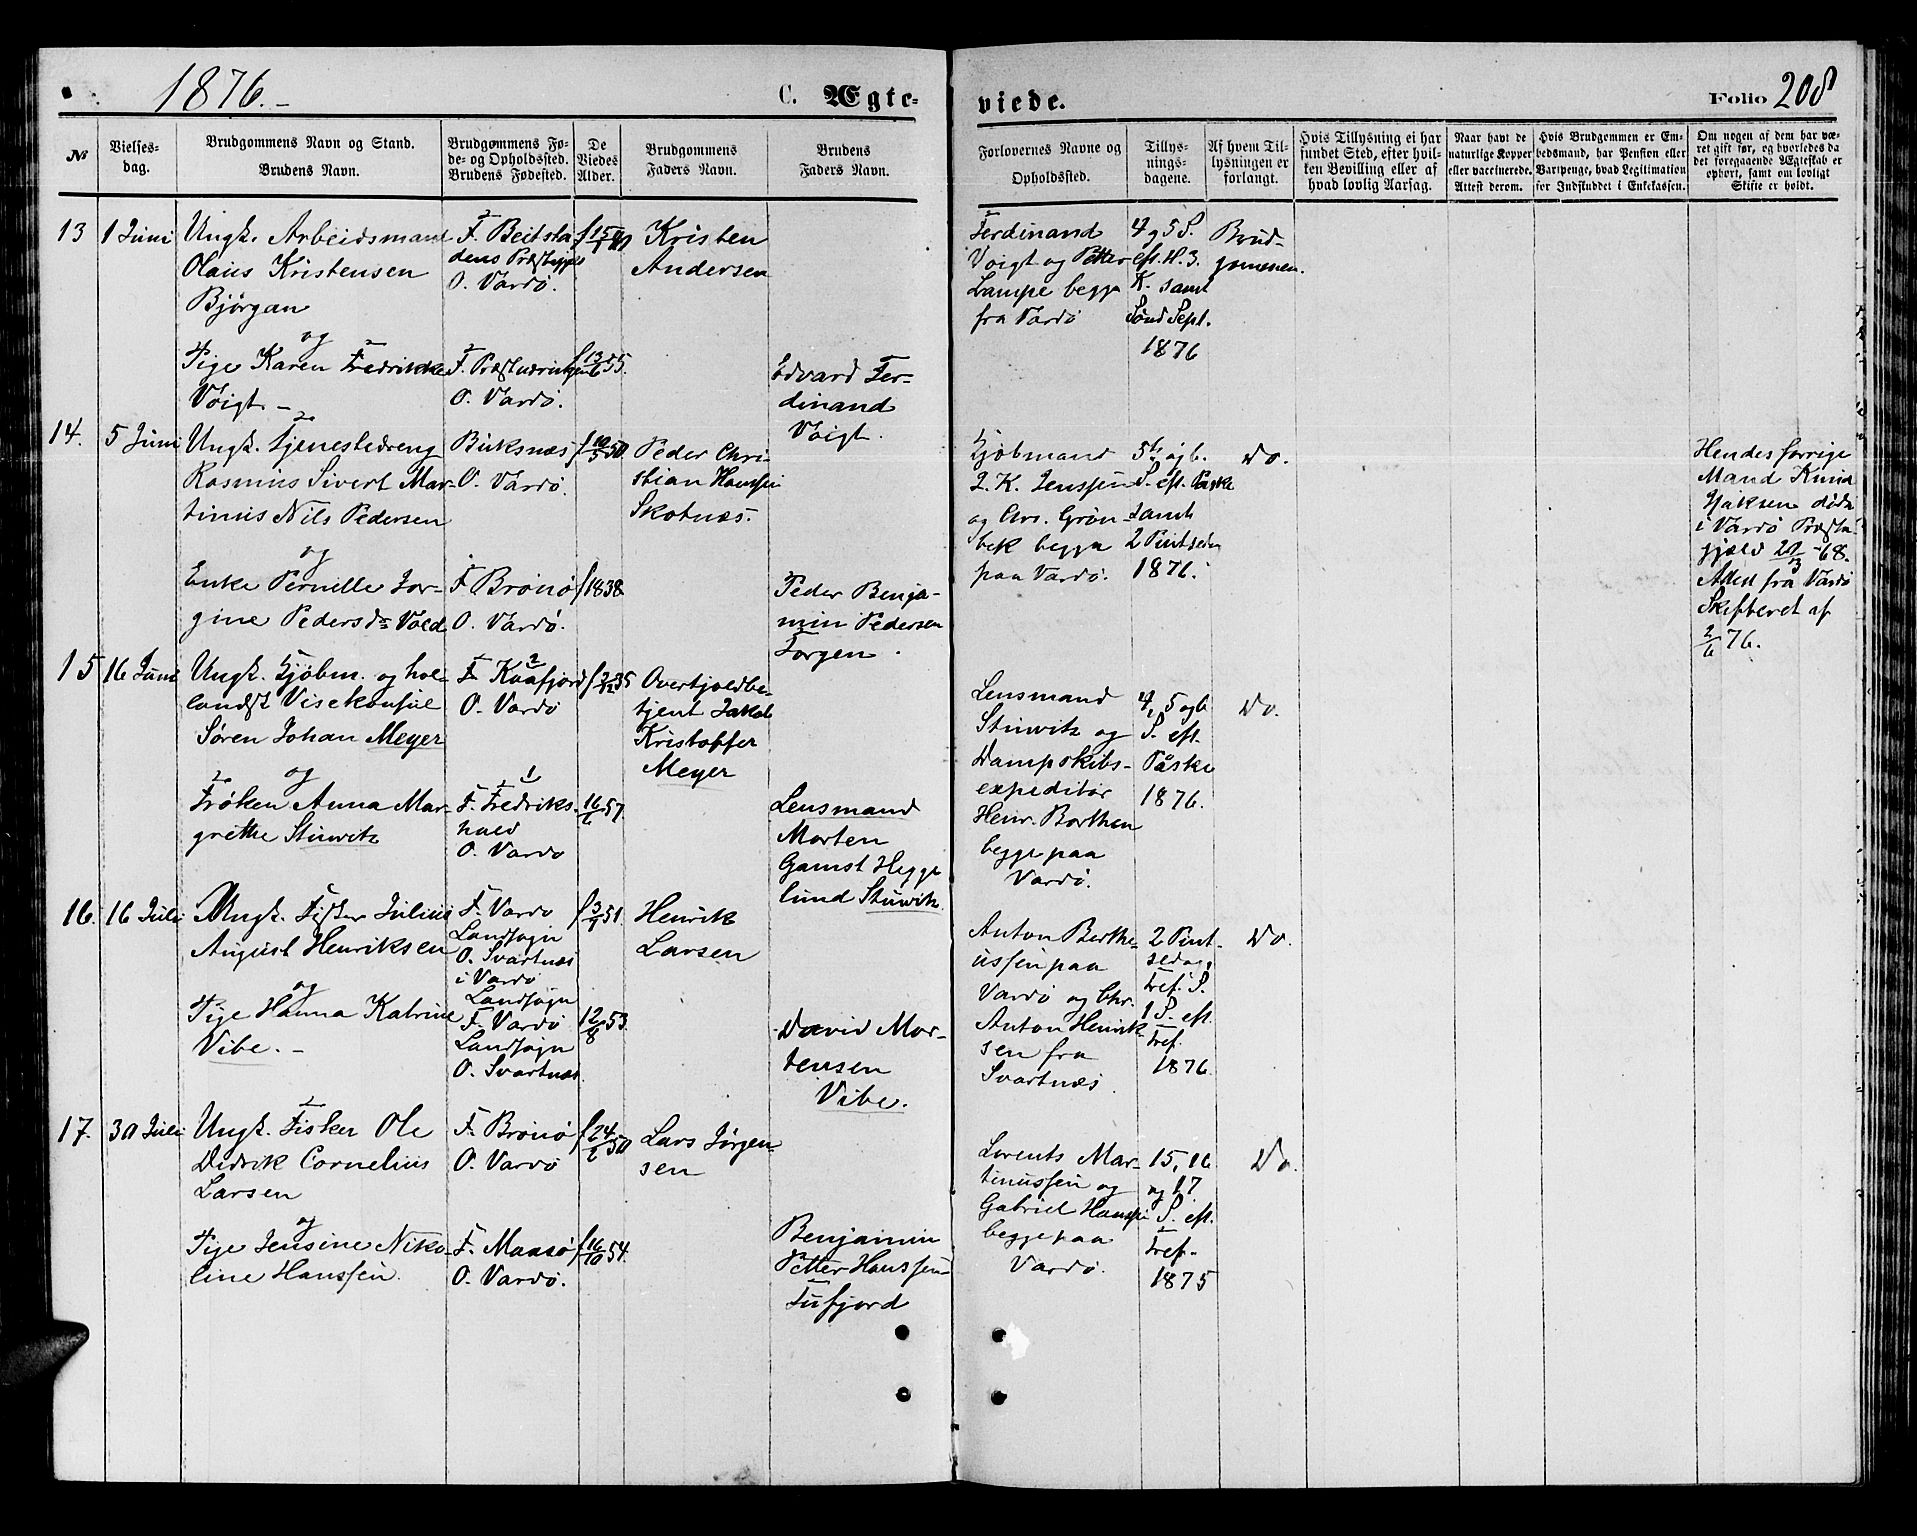 1876.-
C. Ægte-
viede.
Folio 208
No
Vielses-
dag.
Brudgommens Navn og Stand.
Brudens Navn.
Brudgommens Fø-
de- og Opholdssted.
Brudens Fødested.
De
Viedes
Alder.
Brudgommens
Faders Navn.
Brudens
Faders Navn.
Forlovernes Navne og
Opholdssted.
Tillys-
nings-
dagene.
Af hvem Til-
lysningen er
forlangt.
Hvis Tillysning ei har
fundet Sted, efter hvil-
ken Bevilling eller af
hvad lovlig Aarsag.
Naar havt de
naturlige Kopper
eller vaccinerede.
Attest derom.
Hvis Brudgommen er Em-
bedsmand, har Pension eller
Vartpenge, hvad Legitimation
for Indskuddet i Enkekassen.
Om nogen af dem har væ-
ret gift før, og hvorledes da
det foregaaende Ægteskab er
ophørt, samt om lovligt
Skifte er holdt.
13
1 Juni
Ungk. Arbeidsmand
Olaus Kristensen
Bjørgan
og
Pige Karen Fredrikke
Voigt.-
F. Beitsta
dens Præstegjæld
O. Vardø.
F.
O. Vardø.
f 13/6 55.
Kristen
Andersen
Edvard Fer-
dinand
Voigt.
Ferdinand
Voigt og Petter
Lampe begge
fra Vardø
4 og 5 S.
eft. H. 3.
K. samt
Sønd Sept.
1876
Brud-
gommen.
14.
5 Juni
Ungk. Tjenestedreng
Rasmus Sivert Mar-
tinus Nils Pedersen
og
Enke Pernelle Jor-
gine Pedersdr Vold
Buksnæs
O. Vardø.
F Brønø
O. Vardø.
f 10/5 50.
f 1838
Peder Chri-
stian Hanssen
Skotnæs.
Peder Benja-
min Pedersen
Torgen.
Kjøbmand
J. K. Jenssen
og Chr. Grøn-
bek begge
paa Vardø.
5te og 6.
S. eft. Paske
samt
2 Pintsedag
1876.
Do.
Hendes forrige
Mand Knud
Isaksen døde
i Vardø Præste-
gjæld -68.
Attest fra Vardø
Skifteret af
2/6 76.
15
16 Juni
Ungk. Kjøbm. og hol-
landsk Visekonsul
Søren Johan Meyer
og
Frøken Anna Mar-
grethe Stuwitz
F. Kaafjord
O. Vardø
F. Fredriks-
hald
O. Vardø
f 2/12 35
16/6 57.
Overtoldbe-
tjent Jakob
Kristoffer
Meyer
Lensmand
Morten
Gamst Hegge
lund Stuwitz
Lensmand
Stuwitz og
Dampskibs-
expeditør
Henr. Borthen
begge paa
Vardø.
4, 5 og 6
S. eft.
Påske
1876.
Do.
16.
16 Juli
Ungk. Fisker Julius
August Henriksen
og
Pige Hanna Katrine
Vibe.-
F. Vardø
Landsogn
O. Svartnæs
i Vardø
Landsogn
F. Vardø
Landsogn
O. Svartnæs
f 3/9 51.
12/8 53.
Henrik
Larsen
David Mor-
tensen
Vibe.
Anton Berthe-
ussen paa
Vardø og Chr.
Anton Henrik-
sen fra
Svartnæs.
2 Pint-
sedag,
Tref. S.
1 S. eft.
Tref.
1876.
Do.
17.
30 Juli
Ungk. Fisker Ole
Didrik Cornelius
Larsen
og
Pige Jensine Niko-
line Hanssen.
F. Brønø
O. Vardø
F. Maasø
O. Vardø.
f 24/6 50
f 16/10 54.
Lars Jørgen-
sen
Benjamin
Petter Hanssen
Tufjord
Lorents Mar-
tinussen og
Gabriel Hanssen
begge paa
Vardø.
15, 16
og 17
S. eft.
Tref.
1875
Do.